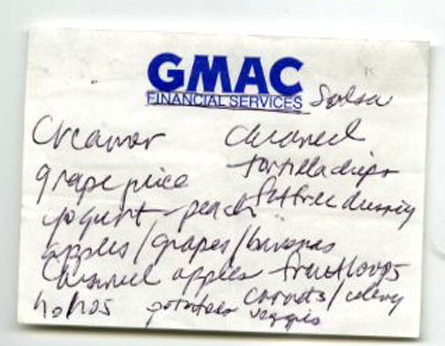 GMAC
FINANCIAL SERVICES Salsa
Creamer Caramel
grape juice tortilla chips
yogurt - peach fat free dressing
apples/grapes/bananas
Caramel apples fruit loops
ho hos potatoes carrots/celery
veggies